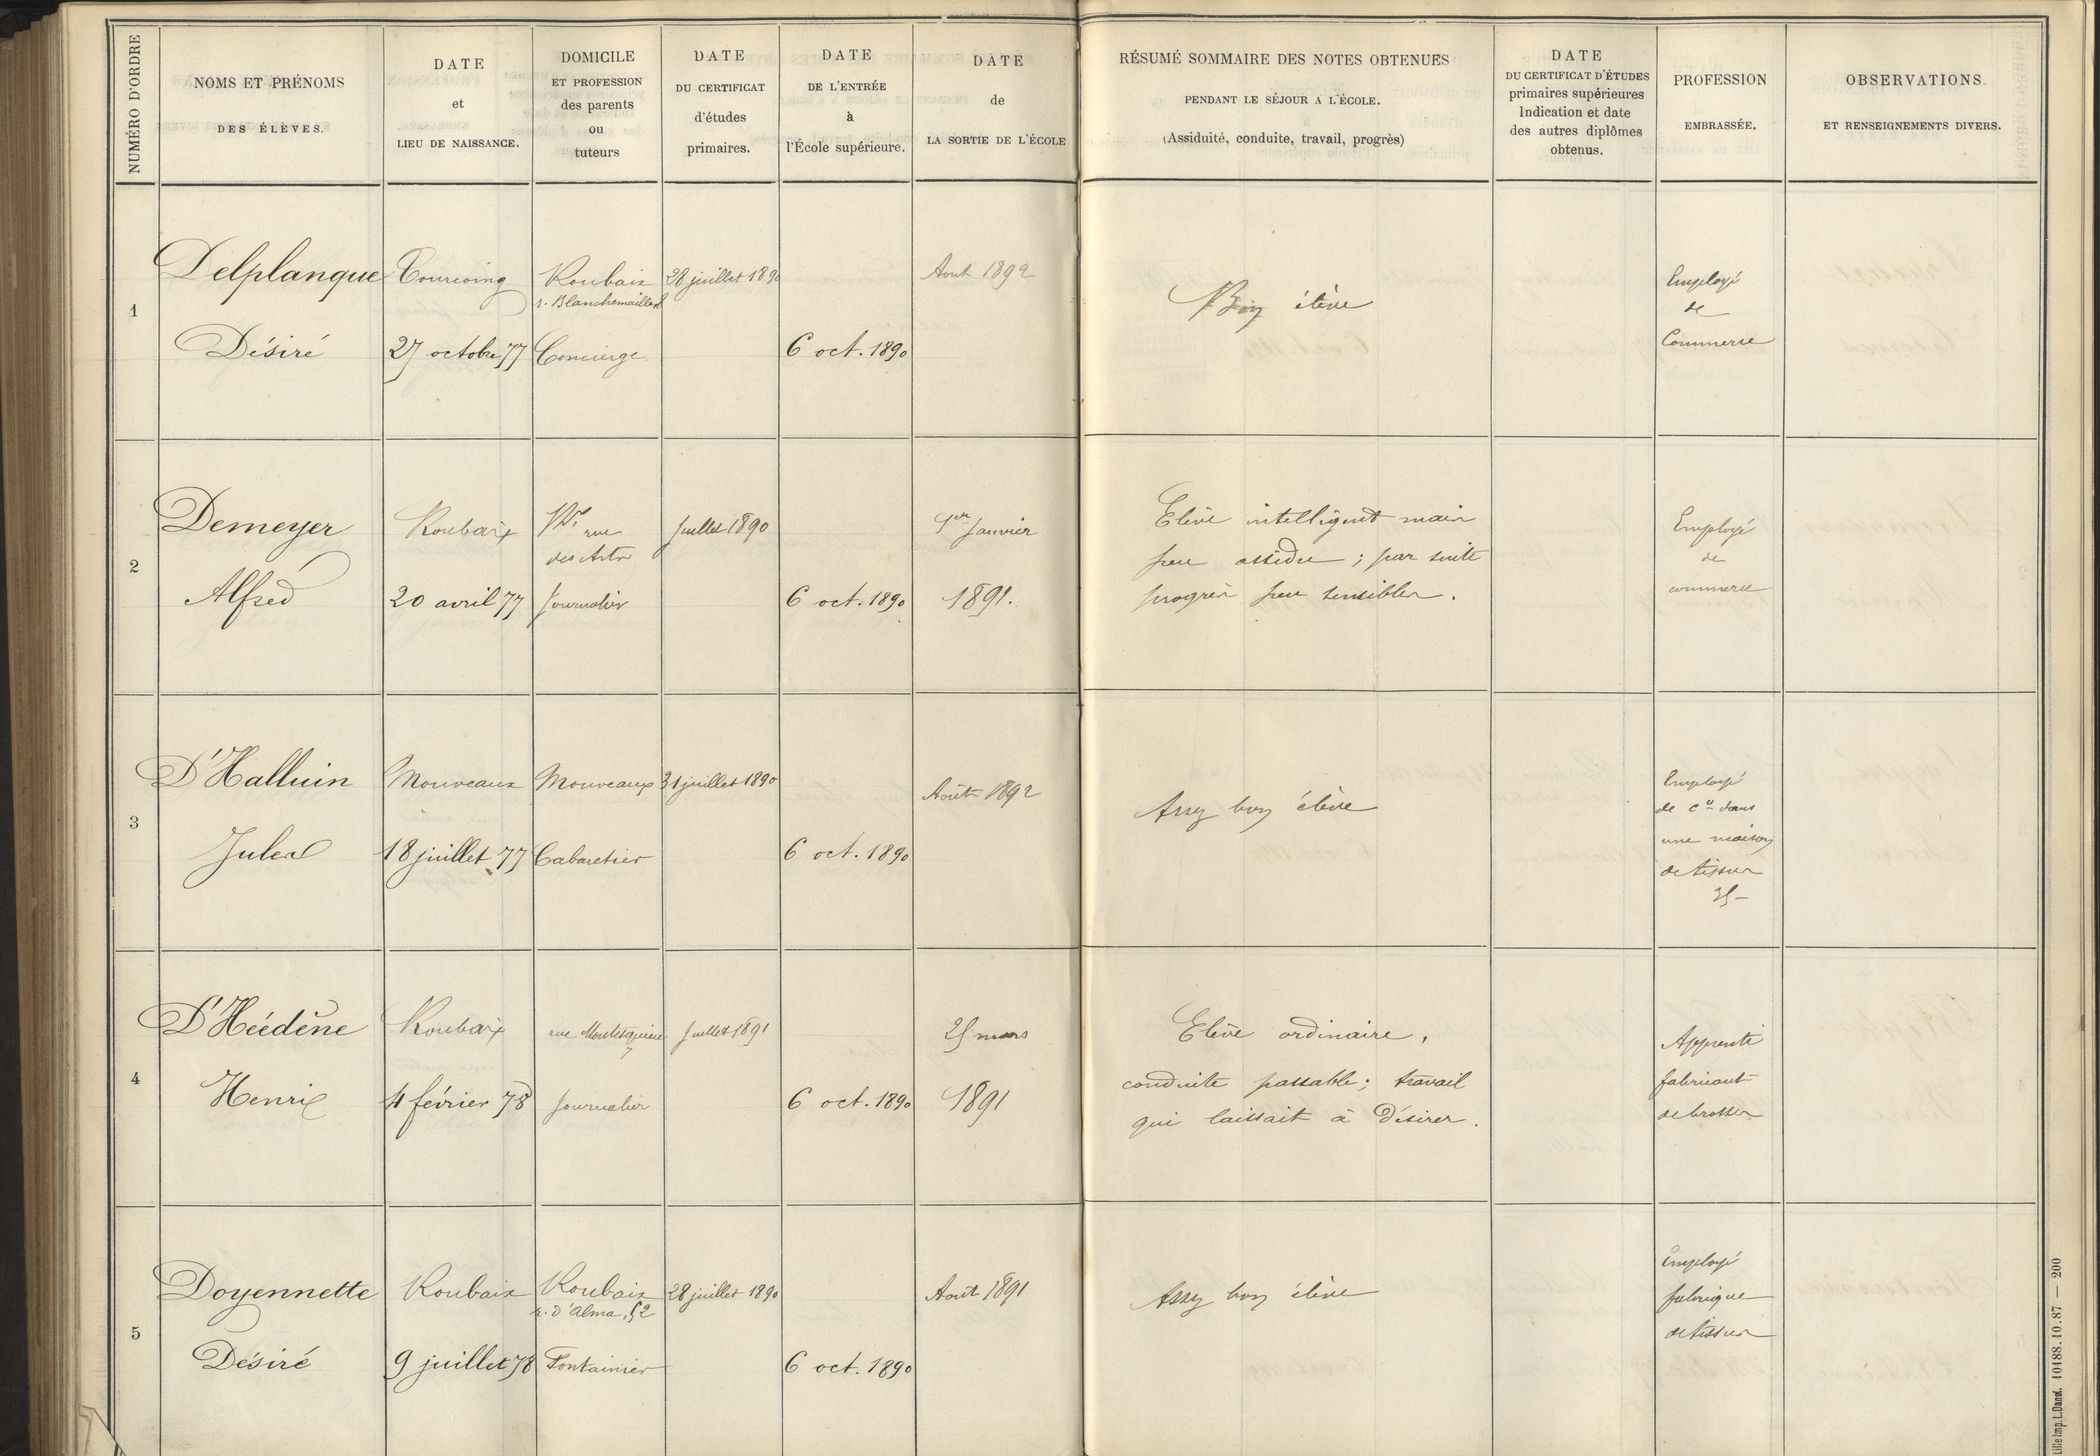 NUMÉRO D'ORDRE
NOMS ET PRÉNOMS
DES ÉLÈVES.
DATE
et
LIEU DE NAISSANCE.
DOMICILE
ET PROFESSION
des parents
ou
tuteurs
DATE
DU CERTIFICAT
d'études
primaires.
DATE
DE L'ENTRÉE
à
l'École supérieure.
DATE
de
LA SORTIE DE L'ÉCOLE
RÉSUMÉ SOMMAIRE DES NOTES OBTENUES
PENDANT LE SÉJOUR A L'ÉCOLE.
(Assiduité, conduite, travail, progrès)
DATE
DU CERTIFICAT D'ÉTUDES
primaires supérieures
Indication et date
des autres diplômes
obtenus.
PROFESSION
EMBRASSÉE.
OBSERVATIONS
ET RENSEIGNEMENTS DIVERS.
1
Delplanque
Désiré
Tourcoing
27 octobre 77
Roubaix
r. Blanchemaille
Concierge
28 juillet 1890
6 oct. 1890
Aout 1892
Bon élève
Employé
de
Commerce
2
Demeyer
Alfred
Roubaix
20 avril 77
rue
des Arts
Journalier
Juillet 1890
6 oct. 1890
1er Janvier
1891.
Elève intelligent mais
peu assidu ; par suite
progrès peu sensibles.
Employé
de
commerce
3
D'Halluin
Jules
Mouveaux
18 juillet 77
Mouveaux
Cabaretier
31 juillet 1890
6 oct. 1890
Août 1892
Assez bon élève
Employé
de ce dans
une maison
de tissus
4
D'Héedène
Henri
Roubaix
4 février 78
rue Montesquieu
7
Journalier
Juillet 1891
6 oct. 1890
25 mars
1891
Elève ordinaire,
conduite passable; travail
qui laissait à désirer.
Apprenti
fabricant
de brosses
5
Doyennette
Désiré
Roubaix
9 juillet 78
Roubaix
r. d'Alma, 52
Fontainier
28 juillet 1890
6 oct. 1890
Août 1891
Assez bon élève
Employé
fabrique
de tissus
Lille Imp. L. Danel. 10488.10.87 — 200